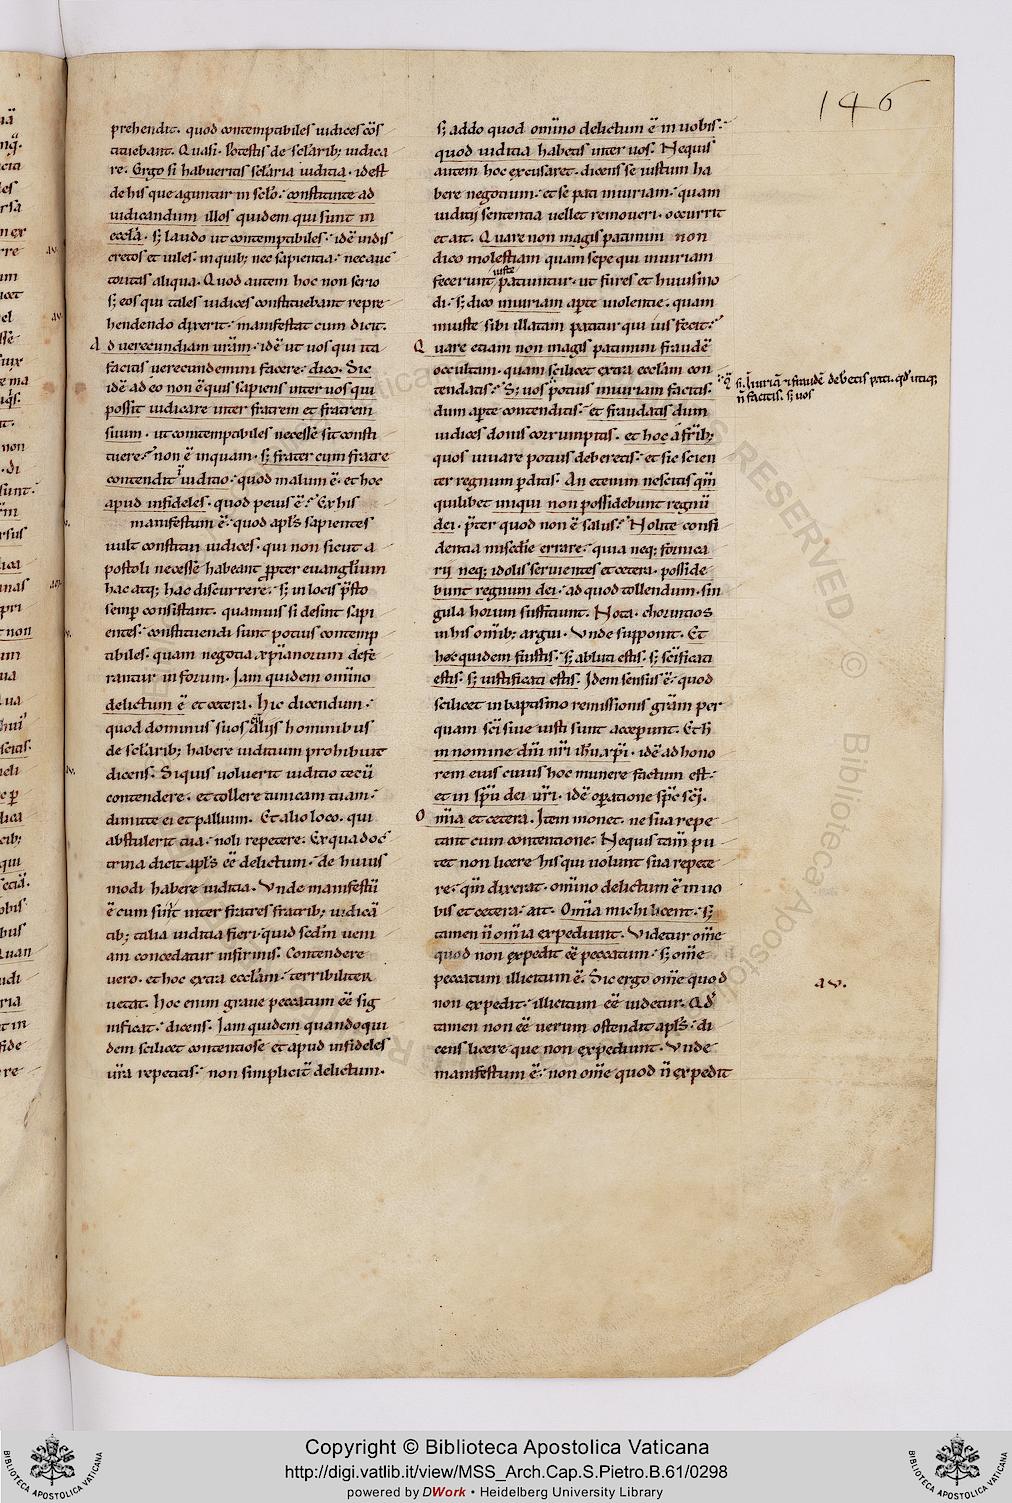 146
prehendit. quod contemptibiles iudices c̄os
tituebant. Quasi. Potestis de sclarib; iudica
re. Ergo si habueritis sclaria iuditia. id est
de his que aguntur in sclo. constituite ad
iudicandum illos quidem qui sunt in
eccla. s; laudo ut contemptibiles. idē indis
cretos et uiles. in quib; nec sapientia. nec auc
toritas aliqua. Quod autem hoc non serio
s; eos qui tales iudices constituebant repre
hendendo dixerit. manifestat cum dicit.
Ad uerecundiam urām. idē ut uos qui ita
facitis uerecundemini facere. dico. Sic
idē adeo non ē quis sapiens inter uos qui
possit iudicare inter fratrem et fratrem
suum. ut contemptibiles necesse sit consti
tuere. non ē inquam. s; frater cum fratre
contendit iuditio. quod malum ē. et hoc
apud infideles. quod peius ē. Ex his
manifestum ē. quod apls sapientes
uult constitui iudices. qui non sicut a
postoli necesse habeant ꝓpter euanglium
hac atq; hac discurrere. s; in locis p̄sto
semꝑ consistant. quamuis si desint sapi
entes. constituendi sunt potius contemp
tibiles. quam negotia xp̄ianorum defe
rantur in forum. Iam quidem omīno
delictum ē et cetera. Hic dicendum.
quod dominus suos alijs hominibus
de sclarib; habere iuditium prohibuit
dicens. Si quis uoluerit iuditio tecū
contendere. et tollere tunicam tuam.
dimitte ei et pallium. Et alio loco. qui
abstulerit tua. noli repetere. Ex qua doc
trina dicit apls eē delictum. de huius
modi habere iuditia. Vnde manifestū
ē cum sint inter fratres fratrib; iudicā
tib; talia iuditia fieri. quid scdm ueni
am concedatur infirmis. Contendere
uero. et hoc extra ecclam. terribiliter
uetat. Hoc enim graue peccatum eē sig
nificat. dicens. Iam quidem quandoqui
dem scilicet contentiose et apud infideles
ura repetitis. non simplicit̄ delictum.
s; addo quod omīno delictum ē in uobis.
quod iuditia habetis inter uos. Nequis
autem hoc excusaret. dicens se iustum ha
bere negotium. et se pati iniuriam. quam
iuditij sententia uellet remoueri. occurrit
et ait. Quare non magis patimini non
dico molestiam quam sepe qui iniuriam
fecerunt iuste patiuntur. ut fures et huiusmo
di. s; dico iniuriam apte uiolentie. quam
iniuste sibi illatam patitur qui ius fecit.
Quare etiam non magis patimini fraudē
occultam. quam scilicet extra ecclam con
tendatis. S; uos potius iniuriam facitis.
dum apte contenditis. et fraudatis dum
iudices donis corrumpitis. et hoc a frīb;
quos iuuare potius deberetis. et sic scien
ter regnum ꝑditis. An etenim nescitis qm̄
quilibet iniqui non possidebunt regnū
dei. p̄ter quod non ē salus. Nolite confi
dentia misc̄die errare. quia neq; fornica
rij neq; idolis seruientes et cetera. posside
bunt regnum dei. ad quod tollendum. sin
gula horum sufficiunt. Nota. chorintios
in his omīb; argui. Vnde supponit. Et
hoc quidem fuistis. s; abluti estis. s; scīficati
estis. s; iustificati estis. Idem sensus ē. quod
scilicet in baptismo remissionis grām per
quam scī siue iusti sunt acceperunt. Et h̄
in nomine dnī nrī ihū xpī. idē ad hono
rem eius cuius hoc munere factum est.
et in spū dei urī. idē oꝑatione spc̄ scī.
Omīa et cetera. Item monet. ne sua repe
tant cum contentione. Nequis tam̄ pu
tet non licere his qui uolunt sua repete
re. qm̄ dixerat. omīno delictum ē in uo
bis et cetera. ait. Omīa michi licent. s;
tamen n̄ omīa expediunt. Videtur omē
quod non expedit eē peccatum. s; omē
peccatum illicitum ē. Sic ergo omē quod
non expedit. illicitum eē uidetur. Qd̄
tamen non eē uerum ostendit apls. di
cens licere que non expediunt. Vnde
manifestum ē. non omē quod n̄ expedit
iniuriā fraudē debetis pati. qd̄ utiq;
n̄ facitis. s; uos
av.
Copyright © Biblioteca Apostolica Vaticana
http://digi.vatlib.it/view/MSS_Arch.Cap.S.Pietro.B.61/0298
powered by DWork • Heidelberg University Library
BIBLIOTECA APOSTOLICA VATICANA
BIBLIOTECA APOSTOLICA VATICANA